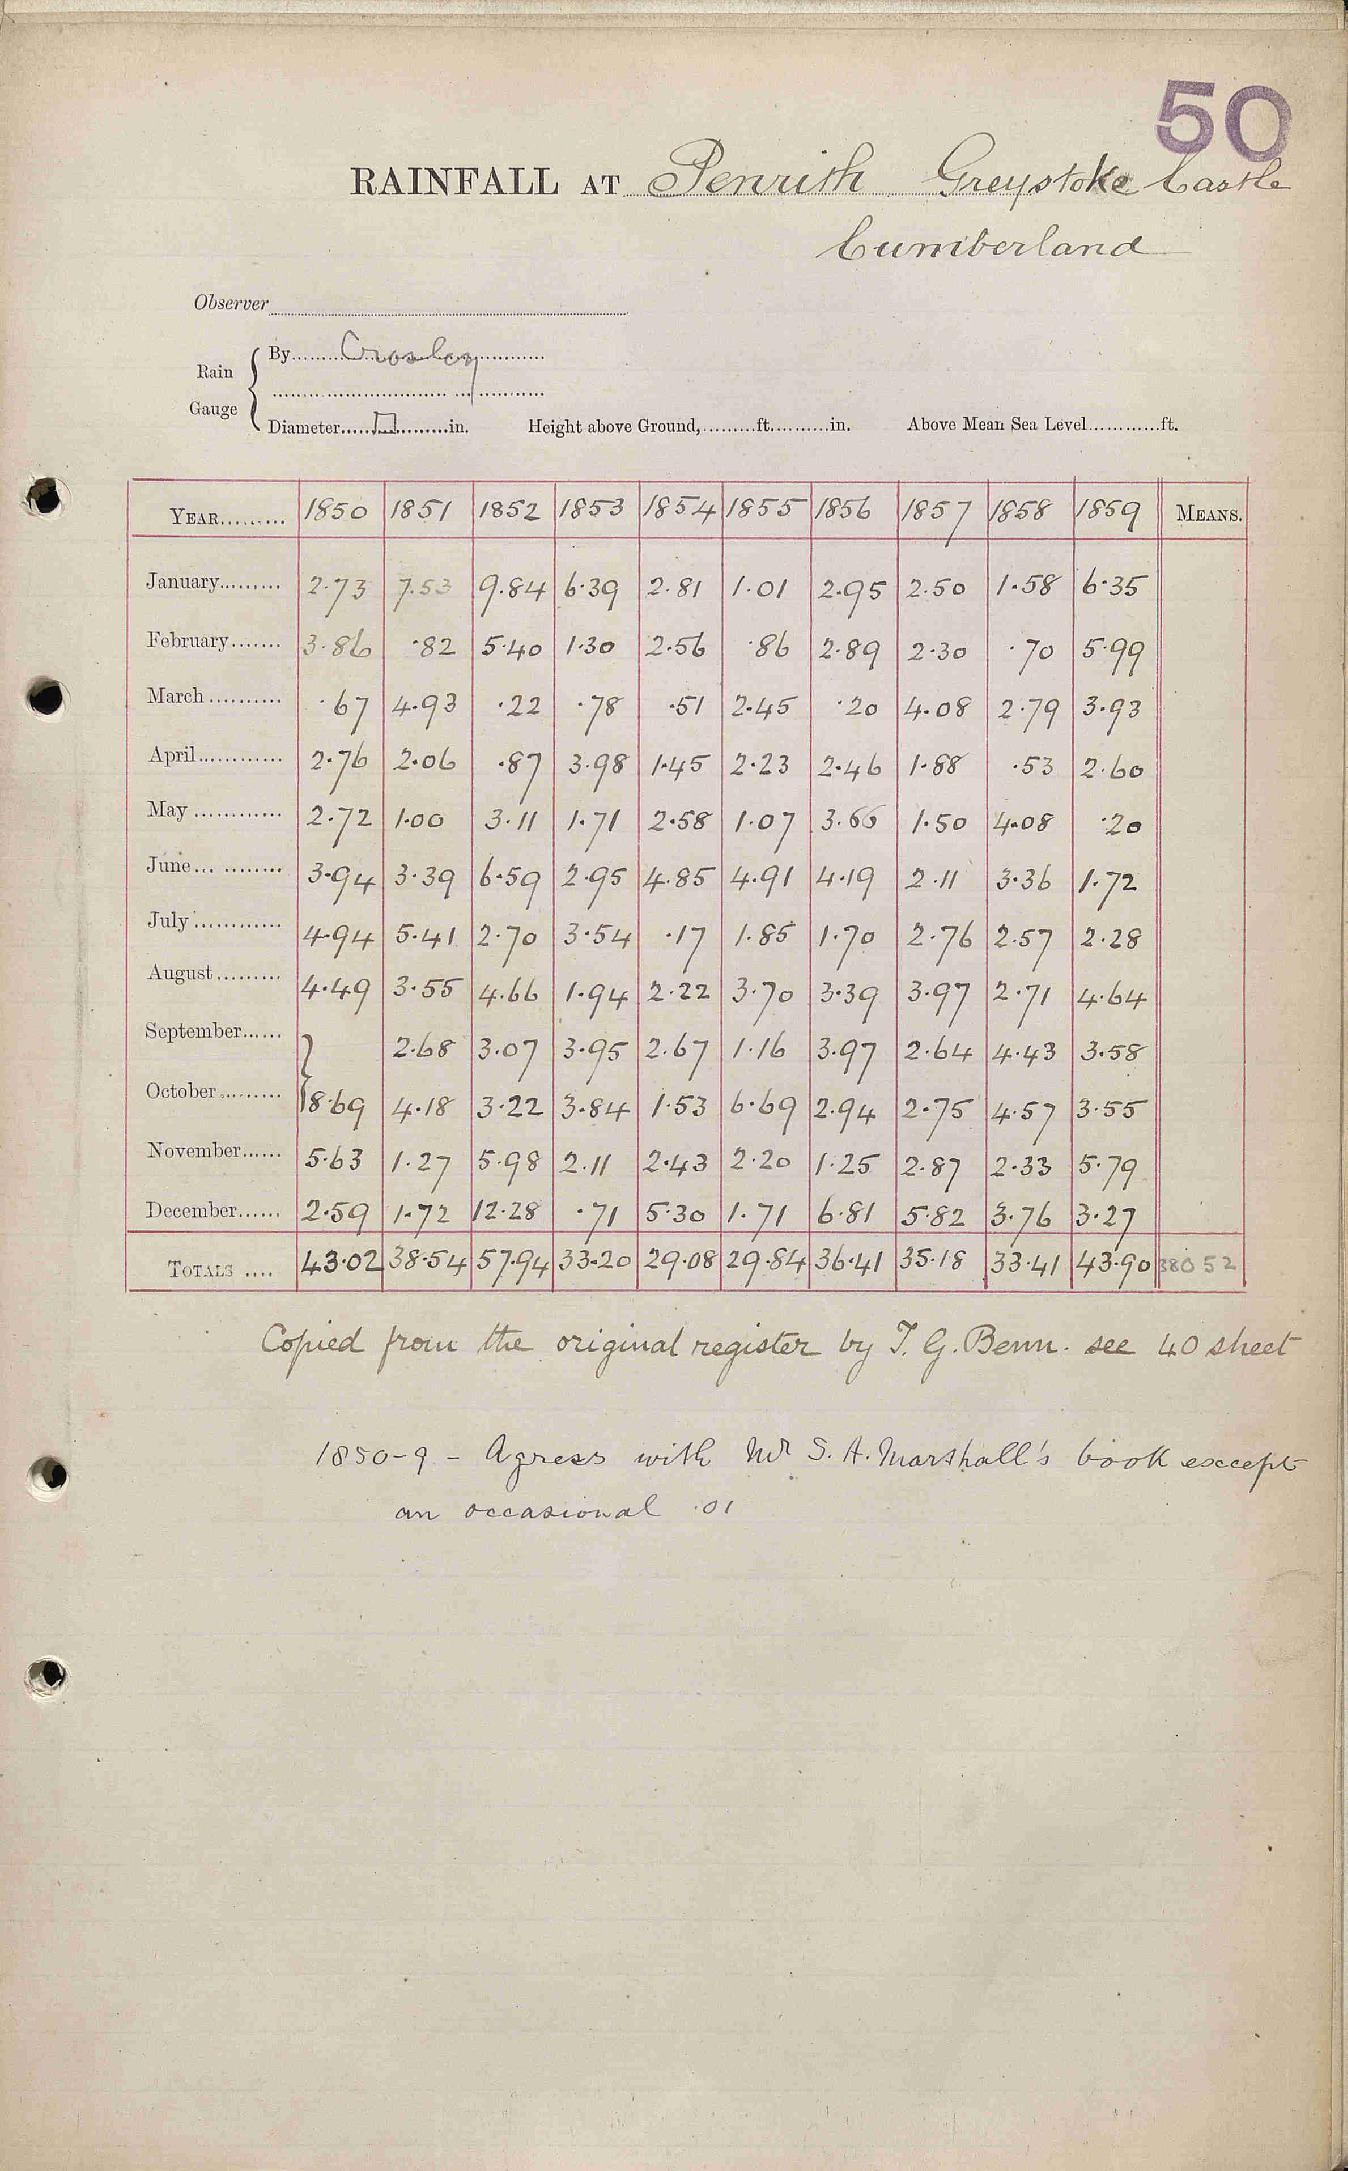 50
RAINFALL AT Penrith Greystoke Castle
Cumberland
Observer
Rain Gauge { By Crosley
Diameter □ in. Height above Ground, ft. in. Above Mean Sea Level ft.
YEAR 1850 1851 1852 1853 1854 1855 1856 1857 1858 1859 MEANS.
January 2.73 7.53 9.84 6.39 2.81 1.01 2.95 2.50 1.58 6.35
February 3.86 .82 5.40 1.30 2.56 .86 2.89 2.30 .70 5.99
March .67 4.93 .22 .78 .51 2.45 .20 4.08 2.79 3.93
April 2.76 2.06 .87 3.98 1.45 2.23 2.46 1.88 .53 2.60
May 2.72 1.00 3.11 1.71 2.58 1.07 3.66 1.50 4.08 .20
June 3.94 3.39 6.59 2.95 4.85 4.91 4.19 2.11 3.36 1.72
July 4.94 5.41 2.70 3.54 .17 1.85 1.70 2.76 2.57 2.28
August 4.49 3.55 4.66 1.94 2.22 3.70 3.39 3.97 2.71 4.64
September } 2.68 3.07 3.95 2.67 1.16 3.97 2.64 4.43 3.58
October 8.69 4.18 3.22 3.84 1.53 6.69 2.94 2.75 4.57 3.55
November 5.63 1.27 5.98 2.11 2.43 2.20 1.25 2.87 2.33 5.79
December 2.59 1.72 12.28 .71 5.30 1.71 6.81 5.82 3.76 3.27
TOTALS 43.02 38.54 57.94 33.20 29.08 29.84 36.41 35.18 33.41 43.90 380 52
Copied from the original register by T. G. Benn. see 40 sheet
1850-9 - Agrees with Mr S. A. Marshall's book except
an occasional .01